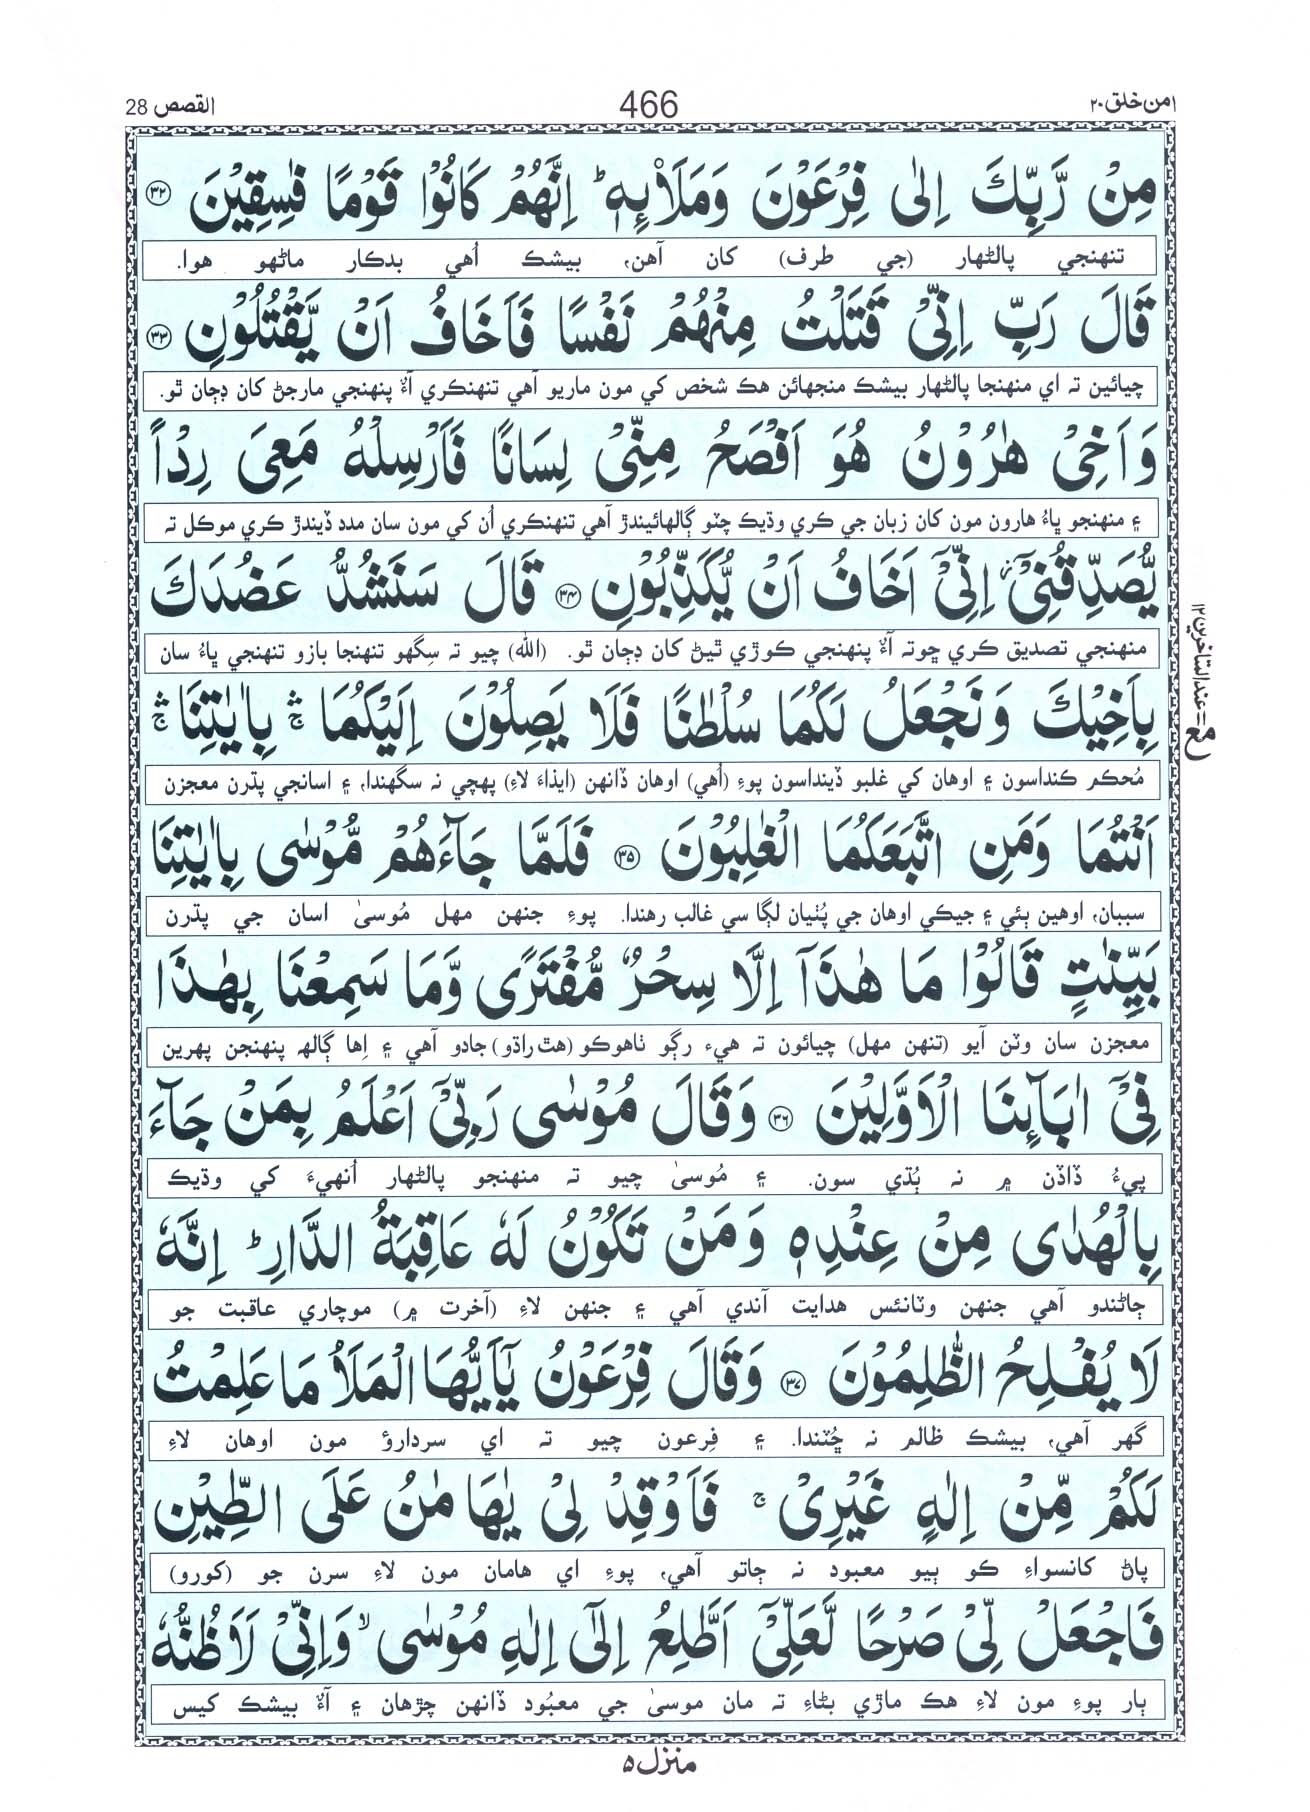 امن خلق ٢٠ 466 القصص 28
مِنْ رَّبِّكَ اِلٰى فِرْعَوْنَ وَمَلَا۠ئِهٖ ؕ اِنَّهُمْ كَانُوْا قَوْمًا فٰسِقِيْنَ ۝۳۲
تنهنجي پالڻهار (جي طرف) کان آهن، بيشڪ اُهي بدڪار ماڻهو هوا.
قَالَ رَبِّ اِنِّىْ قَتَلْتُ مِنْهُمْ نَفْسًا فَاَخَافُ اَنْ يَّقْتُلُوْنِ ۝۳۳
چيائين تہ اي منهنجا پالڻهار بيشڪ منجهائن هڪ شخص کي مون ماريو آهي تنهنڪري آءٌ پنهنجي مارجڻ کان ڊڄان ٿو.
وَاَخِىْ هٰرُوْنُ هُوَ اَفْصَحُ مِنِّىْ لِسَانًا فَاَرْسِلْهُ مَعِىَ رِدْاً
۽ منهنجو ڀاءُ هارون مون کان زبان جي ڪري وڌيڪ چٽو ڳالهائيندڙ آهي تنهنڪري اُن کي مون سان مدد ڏيندڙ ڪري موڪل تہ
يُّصَدِّقُنِىْٓ ز اِنِّىْٓ اَخَافُ اَنْ يُّكَذِّبُوْنِ ۝۳۴ قَالَ سَنَشُدُّ عَضُدَكَ
منهنجي تصديق ڪري ڇوتہ آءٌ پنهنجي ڪوڙي ٿيڻ کان ڊڄان ٿو. (الله) چيو تہ سِگهو تنهنجا بازو تنهنجي ڀاءُ سان
بِاَخِيْكَ وَنَجْعَلُ لَكُمَا سُلْطٰنًا فَلَا يَصِلُوْنَ اِلَيْكُمَا ۛۚ بِاٰيٰتِنَا ۛۚ
مُحڪم ڪنداسون ۽ اوهان کي غلبو ڏينداسون پوءِ (اُهي) اوهان ڏانهن (ايذاءَ لاءِ) پهچي نہ سگهندا، ۽ اسانجي پڌرن معجزن
اَنْتُمَا وَمَنِ اتَّبَعَكُمَا الْغٰلِبُوْنَ ۝۳۵ فَلَمَّا جَآءَهُمْ مُّوْسٰى بِاٰيٰتِنَا
سببان، اوهين ٻئي ۽ جيڪي اوهان جي پُٺيان لڳا سي غالب رهندا. پوءِ جنهن مهل مُوسىٰ اسان جي پڌرن
بَيِّنٰتٍ قَالُوْا مَا هٰذَآ اِلَّا سِحْرٌ مُّفْتَرًى وَّمَا سَمِعْنَا بِهٰذَا
معجزن سان وٽن آيو (تنهن مهل) چيائون تہ هيءُ رڳو ٺاهوڪو (هٿ راڌو) جادو آهي ۽ اِها ڳالهہ پنهنجن پهرين
فِىْٓ اٰبَآئِنَا الْاَوَّلِيْنَ ۝۳۶ وَقَالَ مُوْسٰى رَبِّىْٓ اَعْلَمُ بِمَنْ جَآءَ
پيءُ ڏاڏن ۾ نہ ٻُڌي سون. ۽ مُوسىٰ چيو تہ منهنجو پالڻهار اُنهيءَ کي وڌيڪ
بِالْهُدٰى مِنْ عِنْدِهٖ وَمَنْ تَكُوْنُ لَهٗ عَاقِبَةُ الدَّارِ ؕ اِنَّهٗ
ڄاڻندو آهي جنهن وٽانئس هدايت آندي آهي ۽ جنهن لاءِ (آخرت ۾) موچاري عاقبت جو
لَا يُفْلِحُ الظّٰلِمُوْنَ ۝۳۷ وَقَالَ فِرْعَوْنُ يٰٓاَيُّهَا الْمَلَاُ مَا عَلِمْتُ
گهر آهي، بيشڪ ظالم نہ ڇُٽندا. ۽ فِرعون چيو تہ اي سردارؤ مون اوهان لاءِ
لَكُمْ مِّنْ اِلٰهٍ غَيْرِىْ ۚ فَاَوْقِدْ لِىْ يٰهَامٰنُ عَلَى الطِّيْنِ
پاڻ کانسواءِ ڪو ٻيو معبود نہ ڄاتو آهي، پوءِ اي هامان مون لاءِ سرن جو (کورو)
فَاجْعَلْ لِّىْ صَرْحًا لَّعَلِّىْٓ اَطَّلِعُ اِلٰٓى اِلٰهِ مُوْسٰى ۙ وَاِنِّىْ لَاَظُنُّهٗ
ٻار پوءِ مون لاءِ هڪ ماڙي بڻاءِ تہ مان موسىٰ جي معبُود ڏانهن چڙهان ۽ آءٌ بيشڪ کيس
منزل ۵